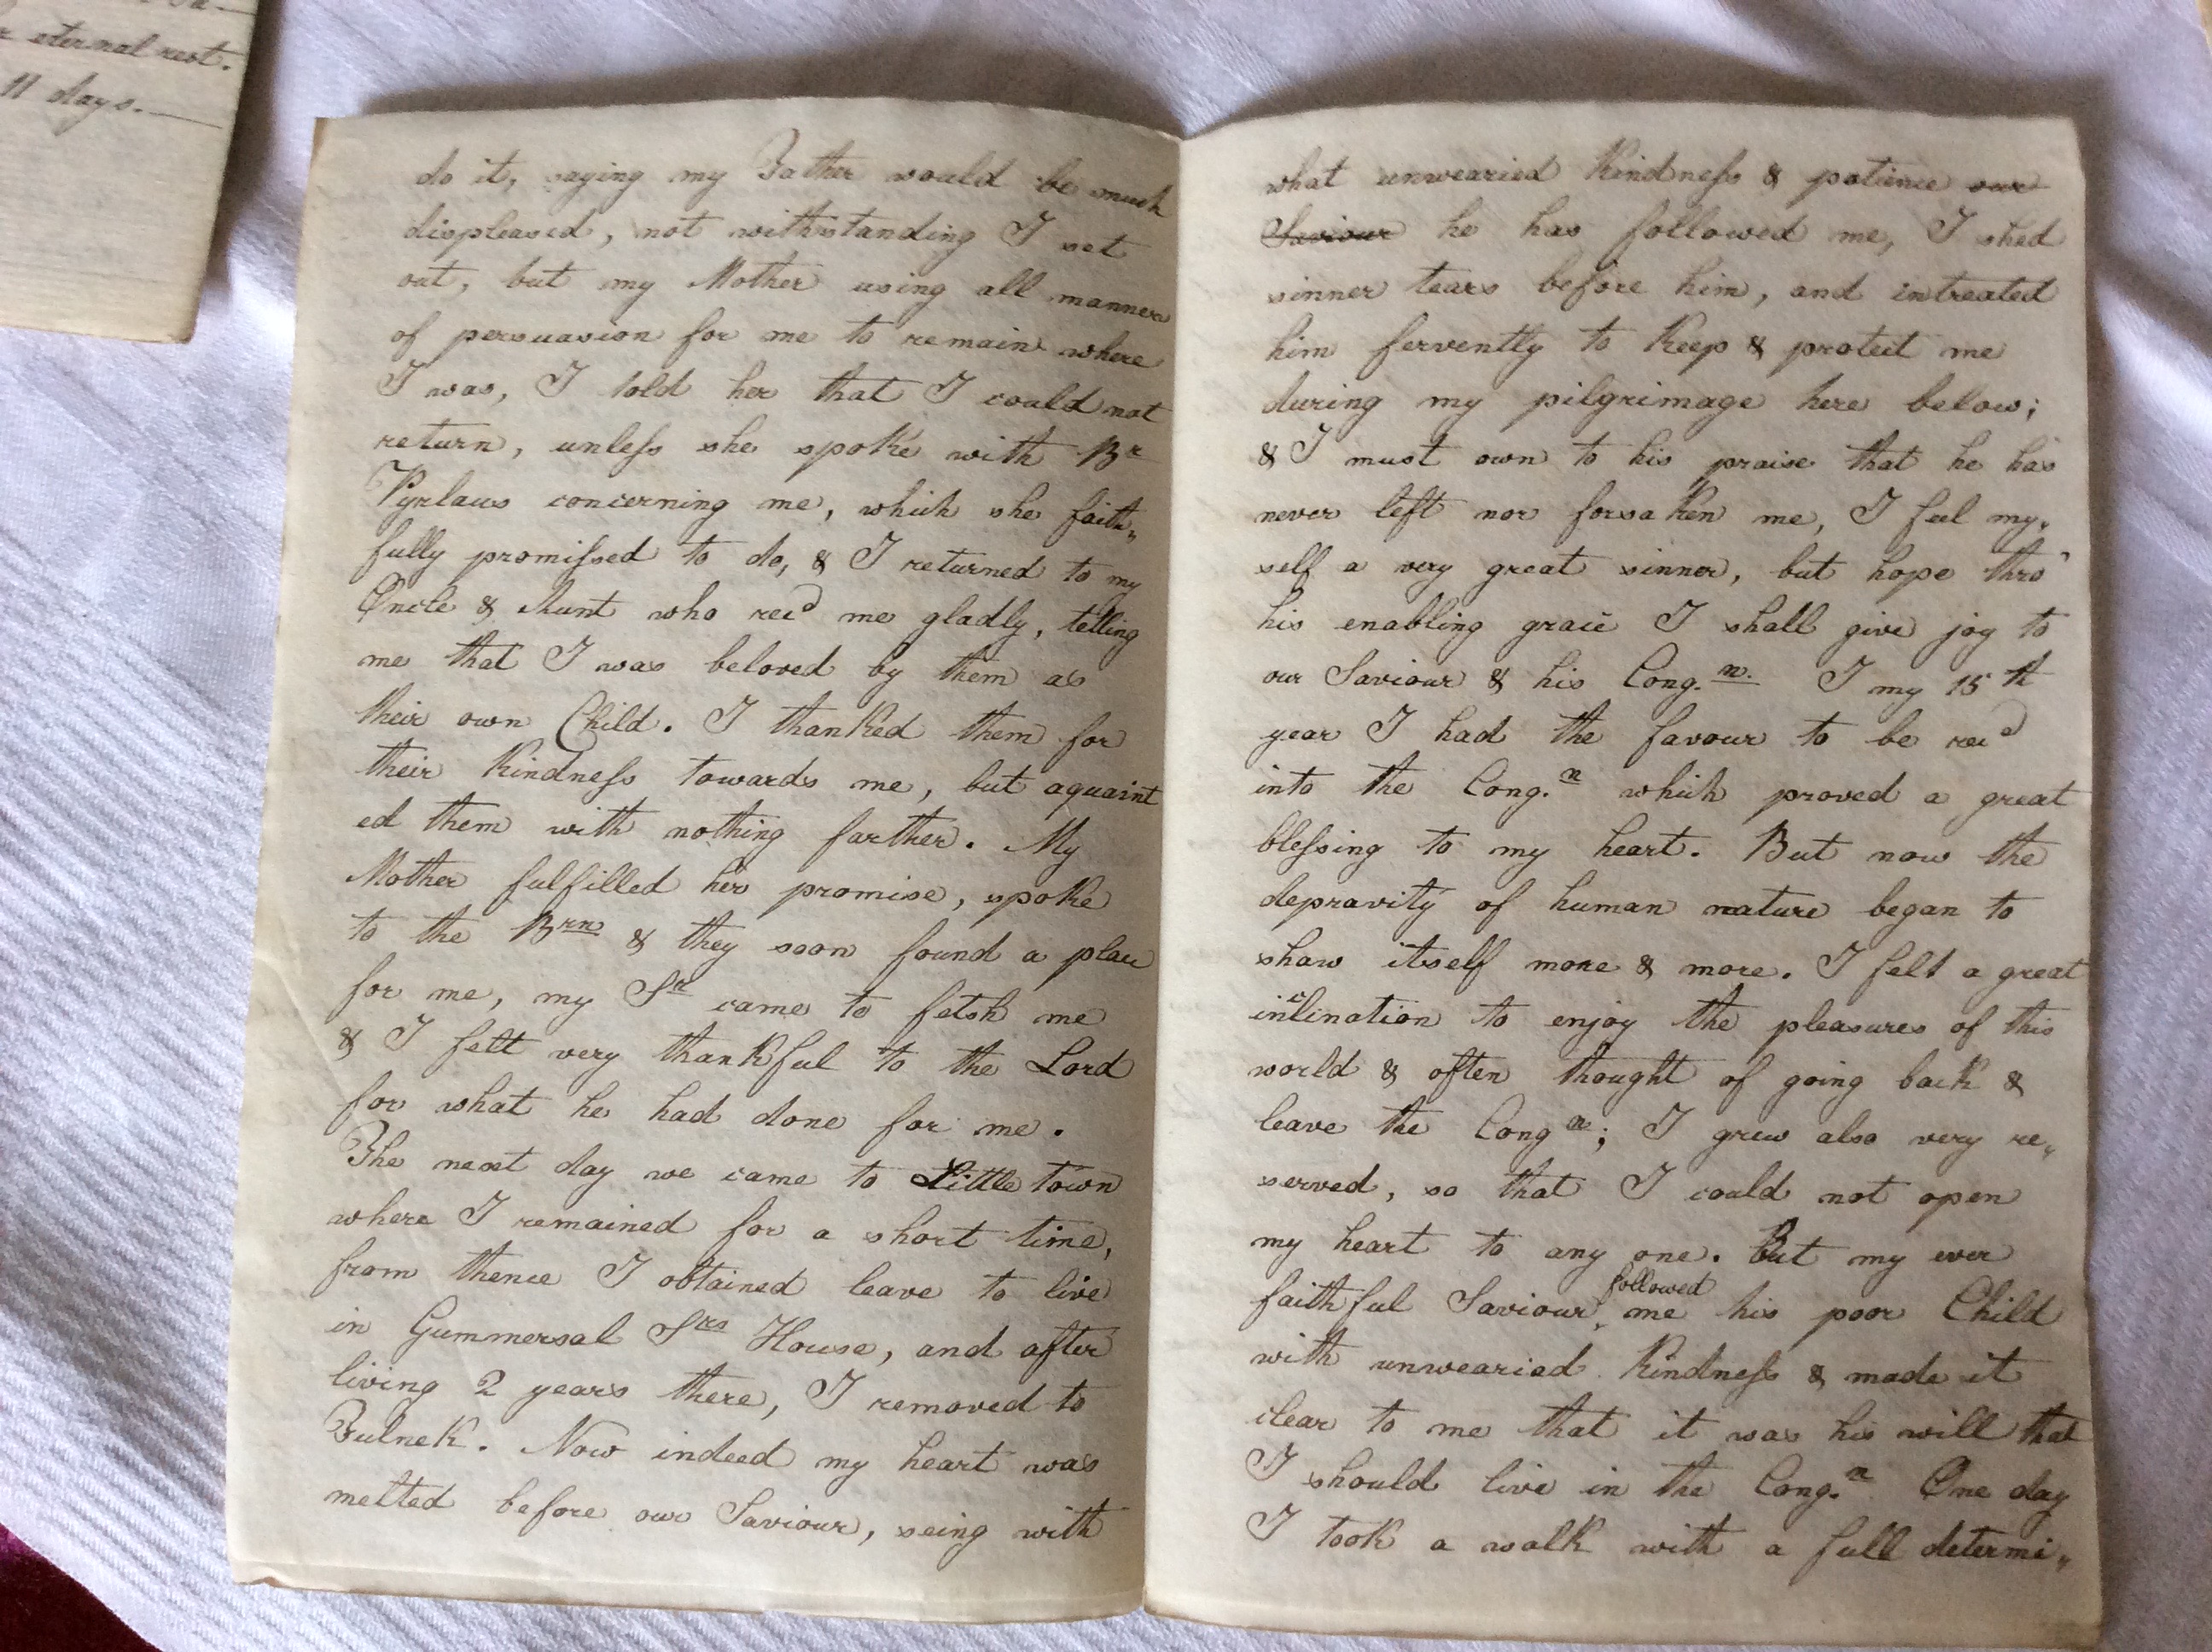 eternal rest.
11 days.—
do it, saying my Father would be much
displeased, not withstanding I set
out, but my Mother using all manner
of persuasion for me to remain where
I was, I told her that I could not
return, unless she spoke with Br
Pyrlaus concerning me, which she faith„
fully promissed to do, & I returned to my
Uncle & Aunt who recd me gladly, telling
me that I was beloved by them as
their own Child. I thanked them for
their Kindness towards me, but aquaint
ed them with nothing farther. My
Mother fulfilled her promise, spoke
to the Brn & they soon found a place
for me, my Sr came to fetsh me
& I felt very thankful to the Lord
for what he had done for me.
The next day we came to Little town
where I remained for a short time,
from thence I obtained leave to live
in Gummersal Srs House, and after
living 2 years there, I removed to
Fulnek. Now indeed my heart was
melted before our Saviour, seing with
what unwearied Kindness & patience our
Saviour he has followed me, I shed
sinner tears before him, and intreated
him fervently to Keep & protect me
during my pilgrimage here below;
& I must own to his praise that he has
never left nor forsaken me, I feel my„
self a very great sinner, but hope thro'
his enabling grace I shall give joy to
our Saviour & his Cong.n. I my 15th
year I had the favour to be recd
into the Cong.n which proved a great
blessing to my heart. But now the
depravity of human nature began to
shaw itself more & more. I felt a great
inclination to enjoy the pleasures of this
world & often thought of going back &
leave the Congn; I grew also very re„
served, so that I could not open
my heart to any one. But my ever
faithful Saviour followed me his poor Child
with unwearied Kindness & made it
clear to me that it was his will that
I should live in the Cong.n One day
I took a walk with a full determi„